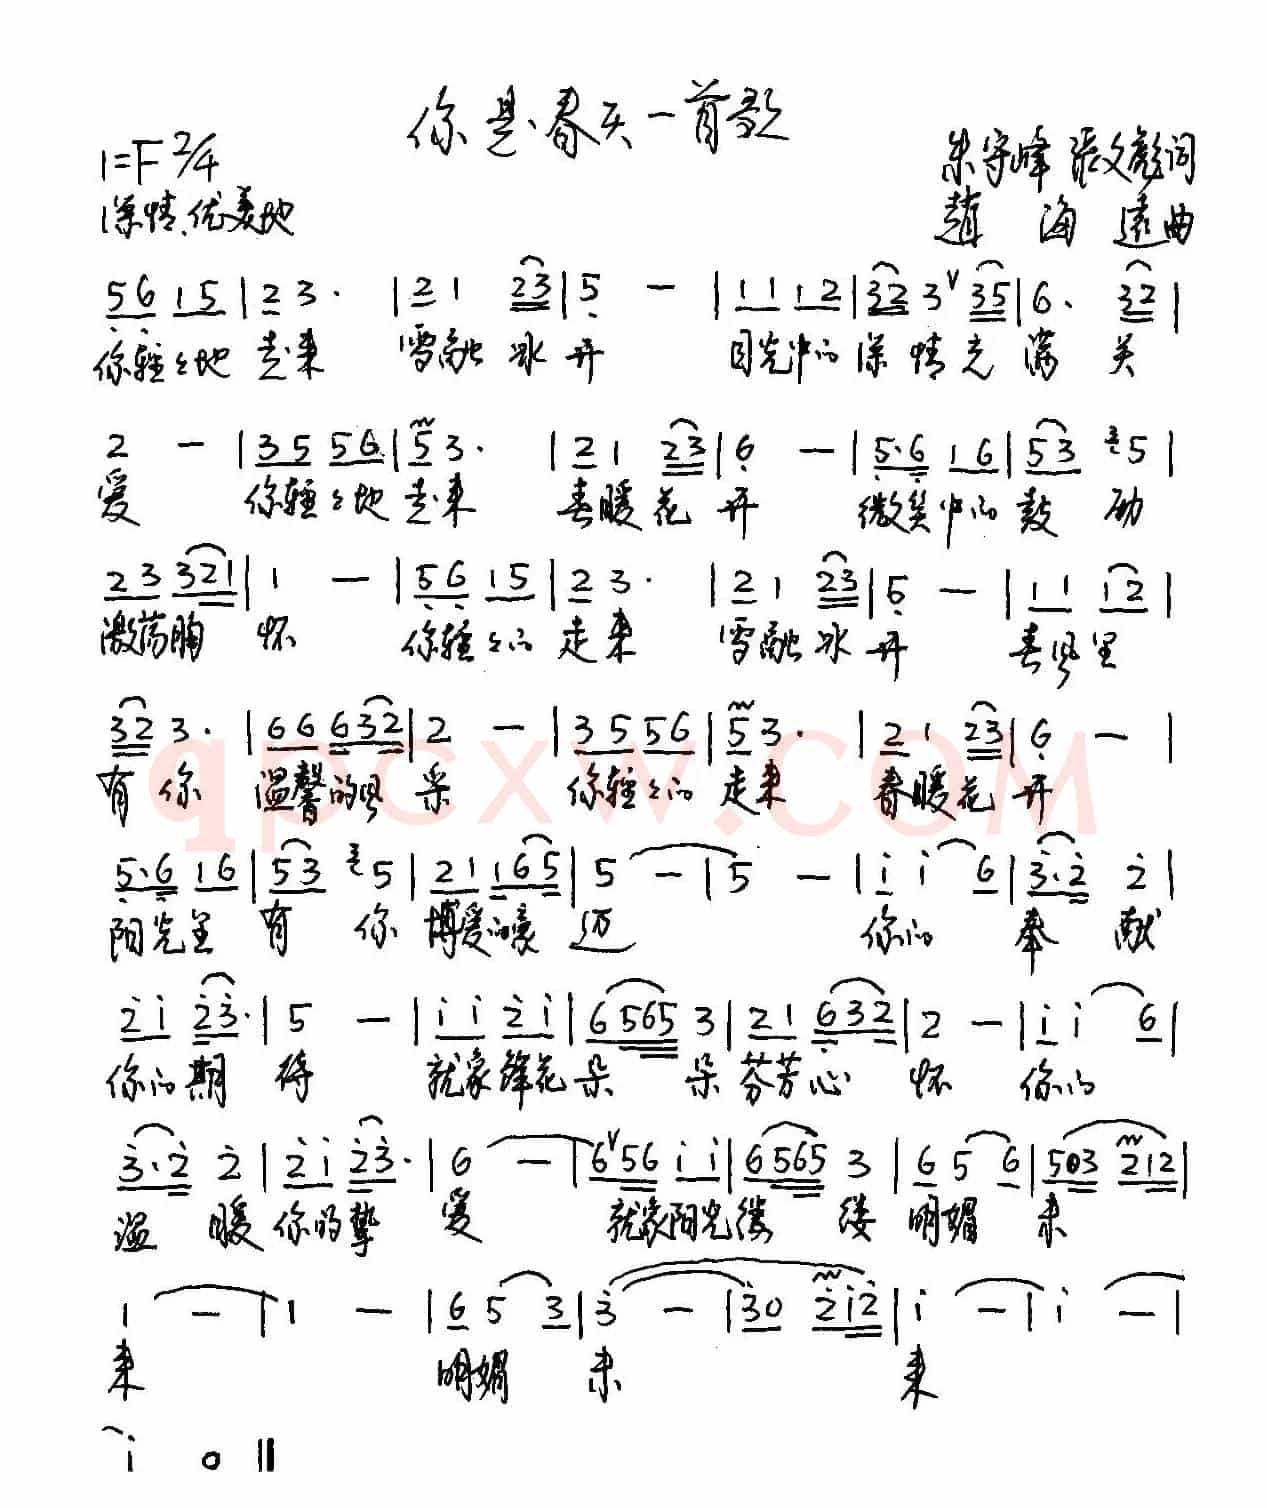 你是春天一首歌
1=F 2/4
朱守峰 张文彪词
深情、优美地
趙海远曲
5 6 1 5 | 2 3· | 2 1 2 3 | 5 — | 1 1 1 2 | 3 2 3 ∨ 3 5 | 6· 3 2 |
你轻々地 走来 雪融冰开 目光中的深情充满关
2 — | 3 5 5 6 | 5 3· | 2 1 2 3 | 6 — | 5·6 1 6 | 5 3 3 5 |
爱 你轻々地 走来 春暖花开 微笑中的鼓励
2 3 3 2 1 | 1 — | 5 6 1 5 | 2 3· | 2 1 2 3 | 5 — | 1 1 1 2 |
激荡胸怀 你轻々的 走来 雪融冰开 春风里
3 2 3· | 6 6 6 3 2 | 2 — | 3 5 5 6 | 5 3· | 2 1 2 3 | 6 — |
有你 温馨的风采 你轻々的 走来 春暖花开
qpcxw.com
5·6 1 6 | 5 3 3 5 | 2 1 1 6 5 | 5 — | 5 — | i i 6 | 3·2 2 |
阳光里 有你 博爱的豪迈 你的 奉献
2 i 2 3· | 5 — | i i 2 i | 6 5 6 5 3 | 2 1 6 3 2 | 2 — | i i 6 |
你的期待 就象锋花朵朵芬芳心怀 你的
3·2 2 | 2 i 2 3· | 6 — | 6 ∨ 5 6 i i | 6 5 6 5 3 | 6 5 6 | 5 0 3 2 1 2 |
温暖 你的挚爱 就象阳光缕缕 明媚未
1 — | 1 — | 6 5 3 | 3 — | 3 0 2 i 2 | i — | i — |
来 明媚 未 来
i 0 ‖